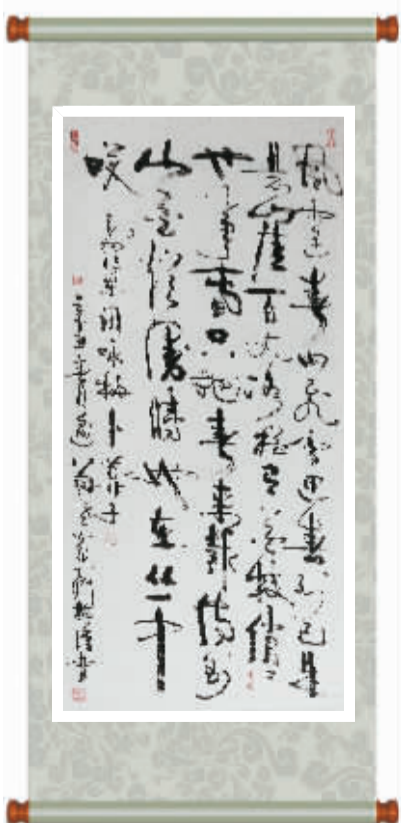 風雨送春归飛雪迎春到已是
悬崖百丈冰犹有花枝俏〻
也不争春只把春来報待到
山花烂漫時她在丛中
咲
毛泽东词咏梅卜算子
辛丑